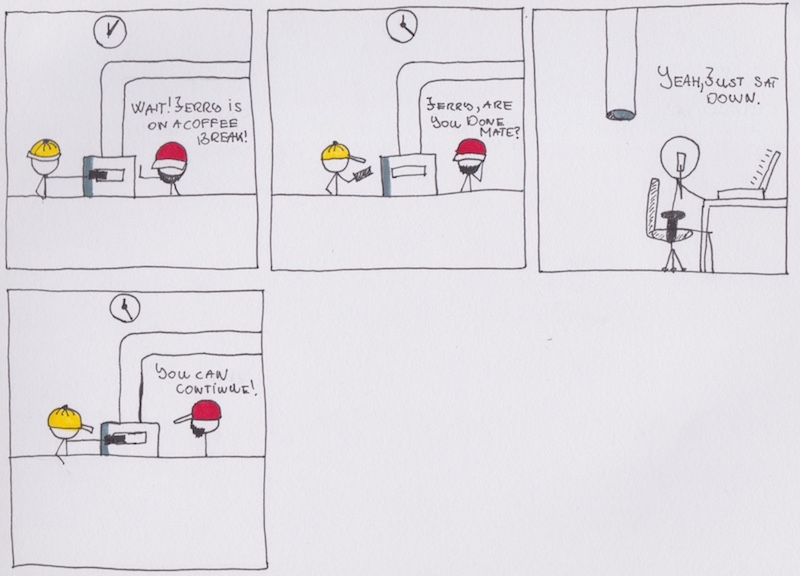 WAIT! JERRY IS
ON A COFFEE
BREAK!
JERRY, ARE
YOU DONE
MATE?
YEAH, JUST SAT
DOWN.
YOU CAN
CONTINUE!